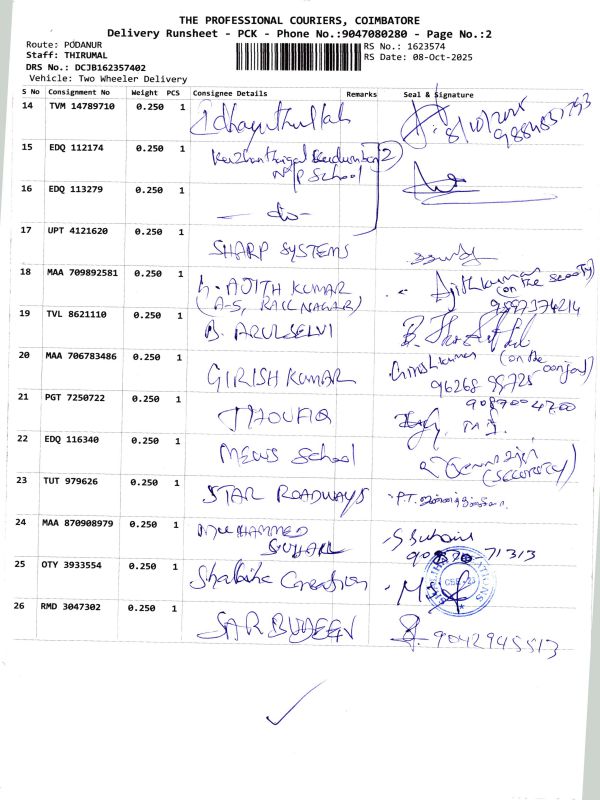 THE PROFESSIONAL COURIERS, COIMBATORE
Delivery Runsheet - PCK - Phone No.:9047080280 - Page No.:2
Route: PODANUR
Staff: THIRUMAL
DRS No.: DCJB162357402
Vehicle: Two Wheeler Delivery
RS No.: 1623574
RS Date: 08-Oct-2025
S No Consignment No Weight PCS Consignee Details Remarks Seal & Signature
14 TVM 14789710 0.250 1
8/10/2025
15 EDQ 112174 0.250 1 2
N/P School
16 EDQ 113279 0.250 1 - do -
17 UPT 4121620 0.250 1 SHARP SYSTEMS
18 MAA 709892581 0.250 1 G. AJITH KUMAR Ajithkumar
(A-5, RAIL NAGAR) (on the scooty)
9597374214
19 TVL 8621110 0.250 1 B. ARULSELVI
20 MAA 706783486 0.250 1 GIRISH KUMAR Girishkumar (on the
96268 95725
21 PGT 7250722 0.250 1 THOUFIQ
9087004700
22 EDQ 116340 0.250 1 MEWS School
(security)
23 TUT 979626 0.250 1 STAR ROADWAYS P.T.
24 MAA 870908979 0.250 1 MUHAMMED
SUHAIL S Suhail
71313
25 OTY 3933554 0.250 1 Shabiha Creation
26 RMD 3047302 0.250 1 SARBUDEEN 9042945513